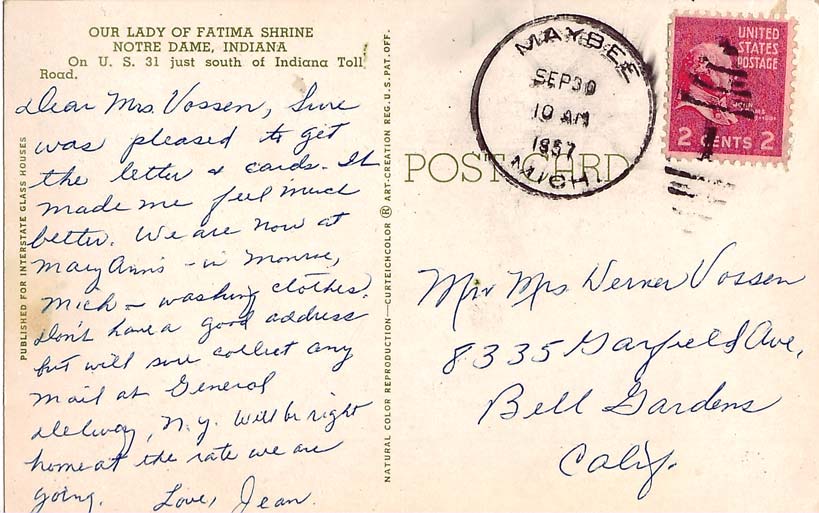 OUR LADY OF FATIMA SHRINE
NOTRE DAME, INDIANA
On U. S. 31 just south of Indiana Toll
Road.
Dear Mrs. Vossen, Sure
was pleased to get
the letter & cards. It
made me feel much
better. We are now at
Mary Ann's - in Monroe,
Mich - washing clothes.
Don't have a good address
but will sure collect any
mail at General
Delivery, N.Y. Will be right
home at the rate we are
going. Love, Jean.
PUBLISHED FOR INTERSTATE GLASS HOUSES
NATURAL COLOR REPRODUCTION—CURTEICHCOLOR ® ART-CREATION REG. U.S. PAT. OFF.
POST CARD
MAYBEE
SEP 30
10 AM
1957
MICH.
UNITED
STATES
POSTAGE
2 CENTS 2
Mr & Mrs Werner Vossen
8335 Garfield Ave,
Bell Gardens
Calif.